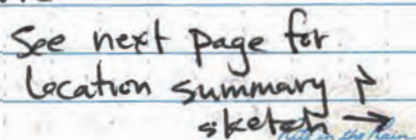 See next page for
location summary &
sketch →
Rite in the Rain